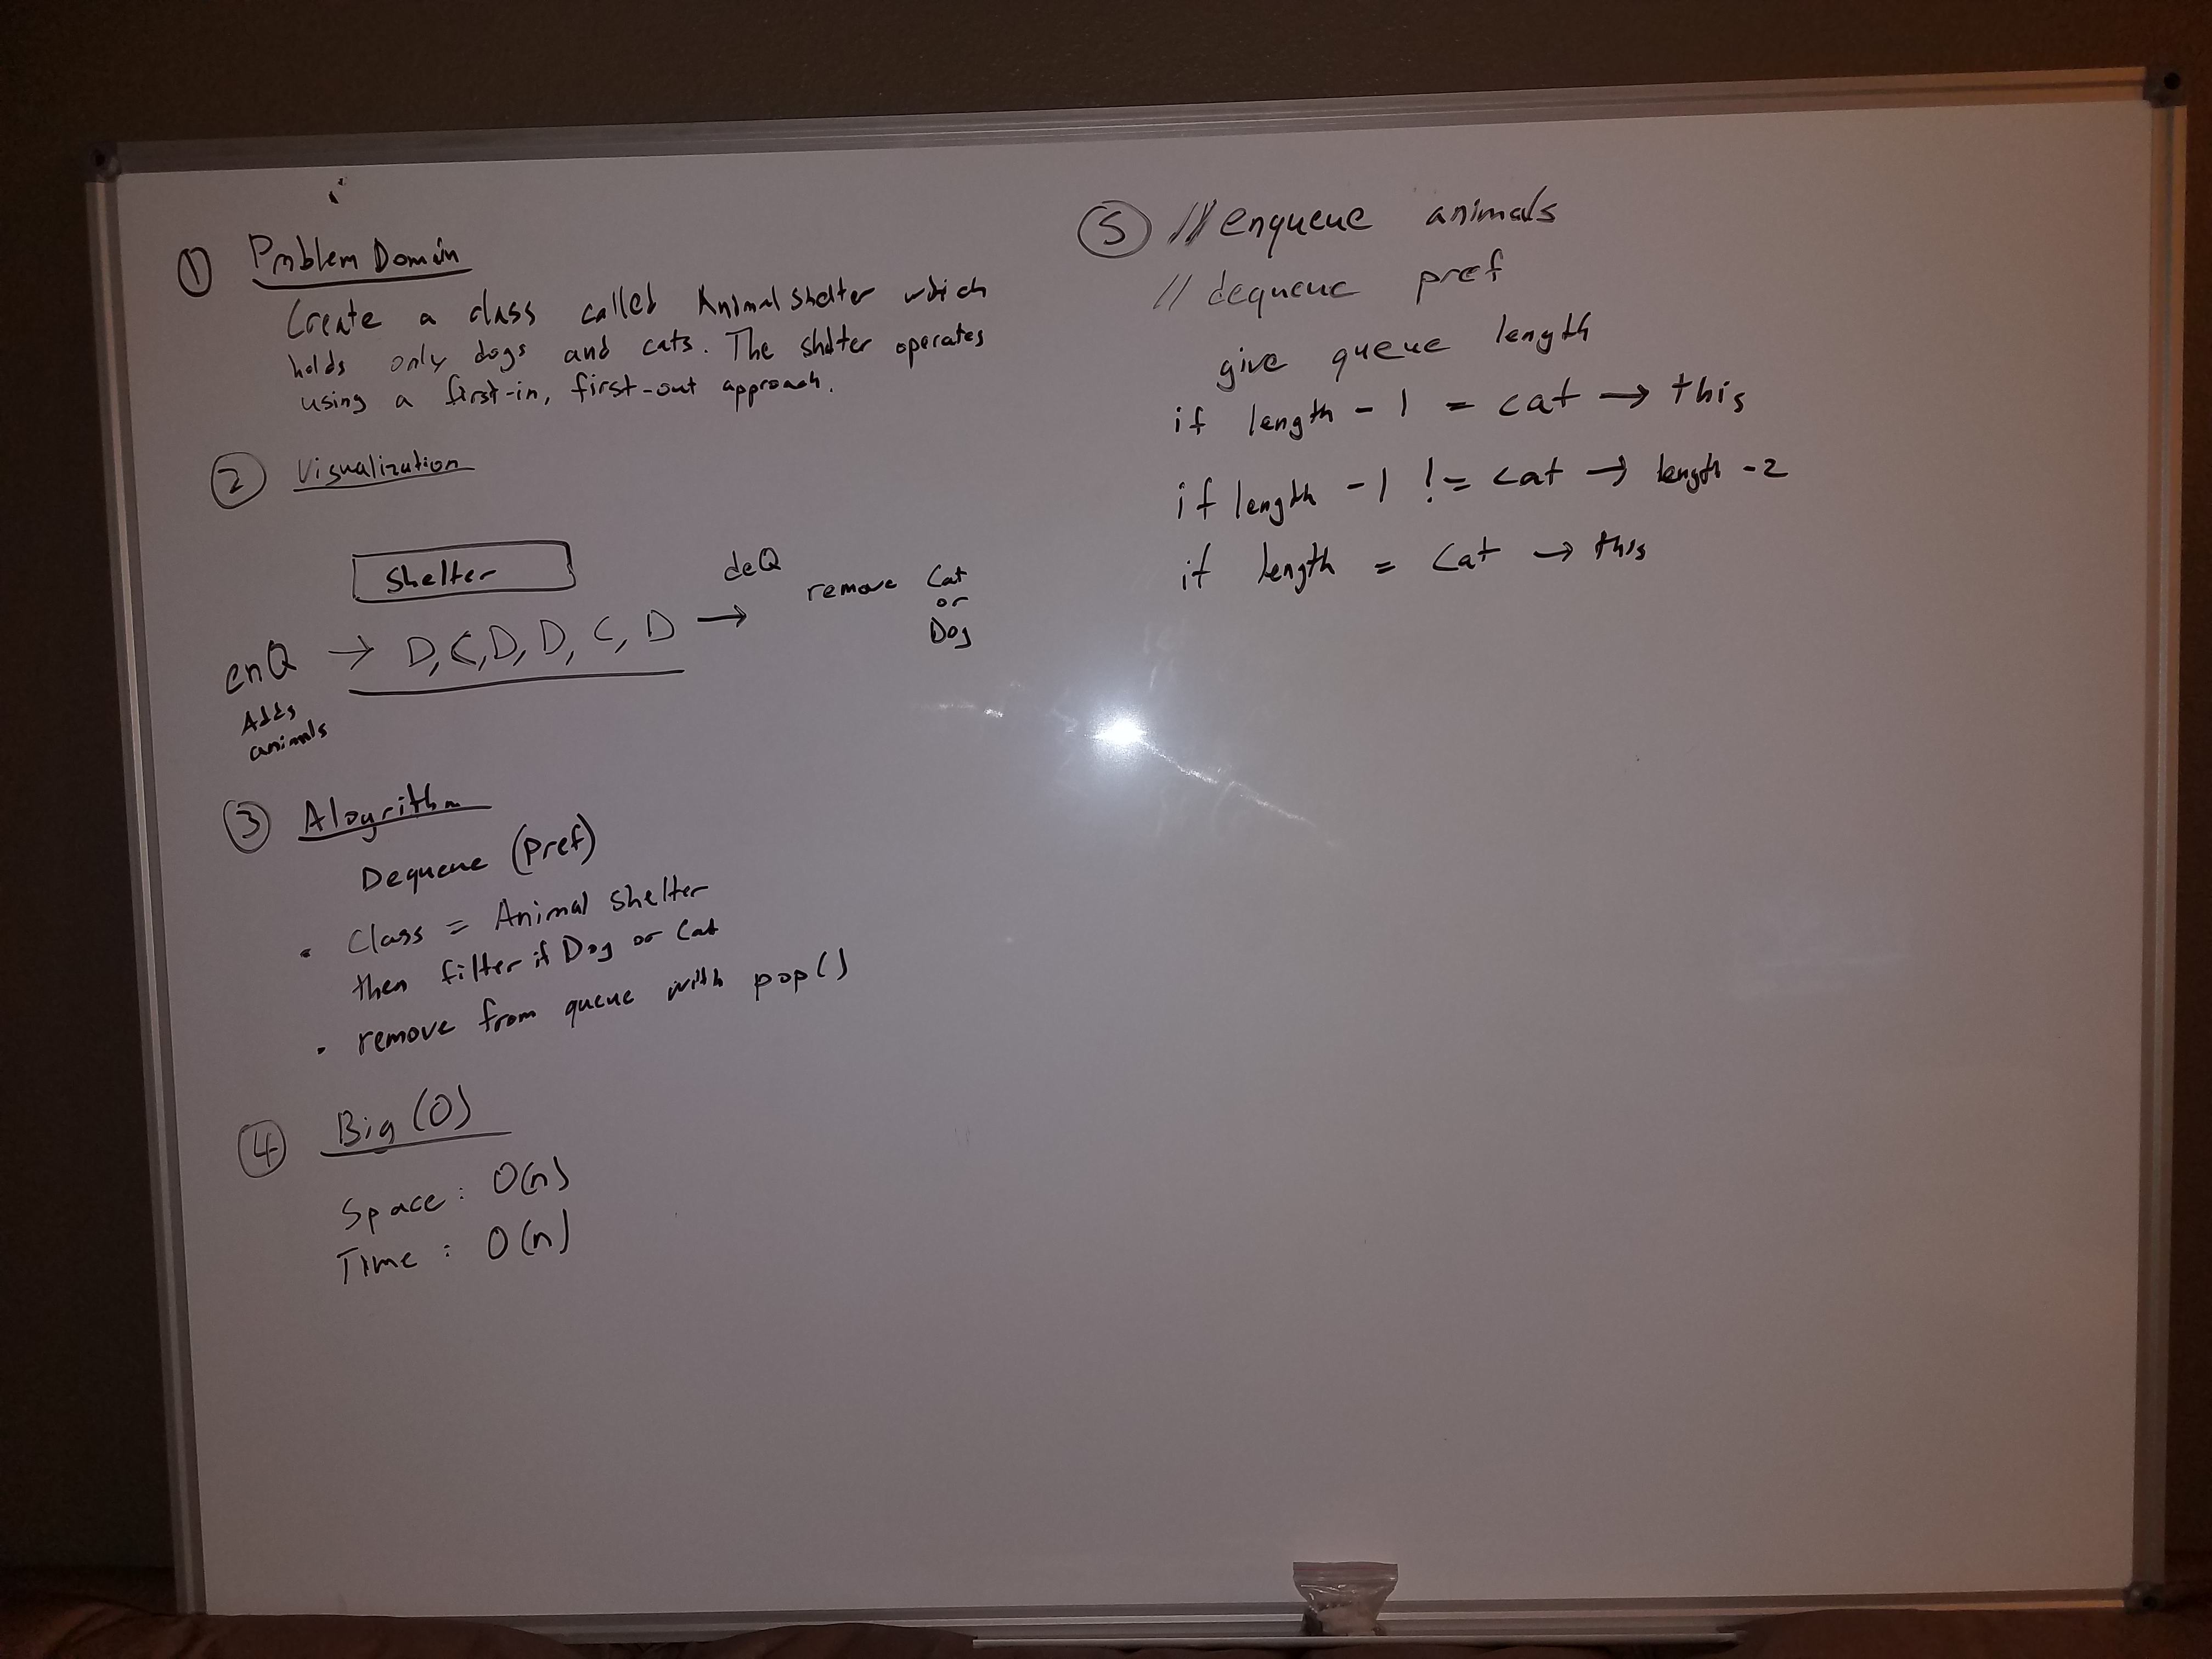 ① Problem Domain
Create a class called AnimalShelter which
holds only dogs and cats. The shelter operates
using a first-in, first-out approach.
② Visualization
Shelter
enQ → D, C, D, D, C, D → deQ remove Cat
or
Dog
Adds
animals
③ Alogrithm
Dequeue (pref)
• Class = Animal Shelter
then filter if Dog or Cat
• remove from queue with pop()
④ Big (O)
Space: O(n)
Time: O(n)
⑤ // enqueue animals
// dequeue pref
give queue length
if length - 1 = cat → this
if length - 1 != cat → length - 2
if length = Cat → this